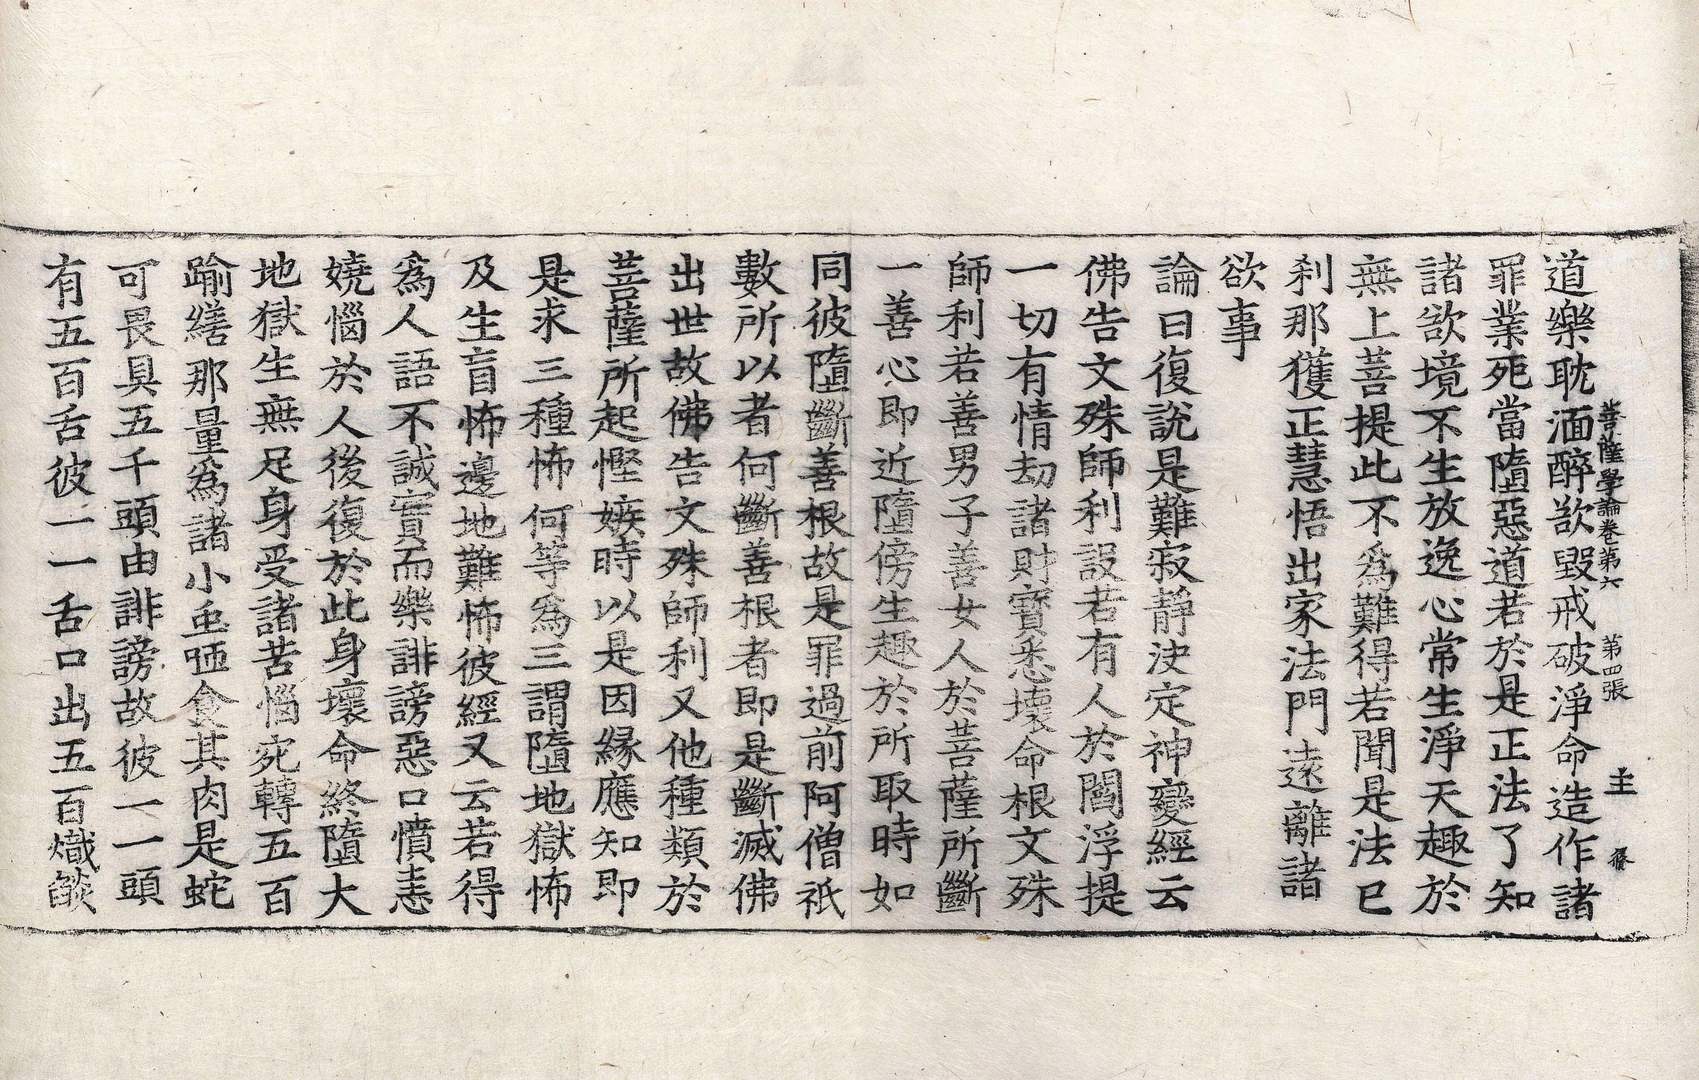 菩薩學論卷第六　第四張　主
道樂耽湎醉欲毀戒破淨命造作諸
罪業死當墮惡道若於是正法了知
諸欲境不生放逸心常生淨天趣於
無上菩提此不爲難得若聞是法已
刹那獲正慧悟出家法門遠離諸
欲事
論曰復說是難寂靜決定神變經云
佛告文殊師利設若有人於閻浮提
一切有情劫諸財寶悉壞命根文殊
師利若善男子善女人於菩薩所斷
一善心即近墮傍生趣於所取時如
同彼墮斷善根故是罪過前阿僧祇
數所以者何斷善根者即是斷滅佛
出世故佛告文殊師利又他種類於
菩薩所起慳嫉時以是因緣應知即
是求三種怖何等爲三謂墮地獄怖
及生盲怖邊地難怖彼經又云若得
爲人語不誠實而樂誹謗惡口憤恚
嬈惱於人後復於此身壞命終墮大
地獄生無足身受諸苦惱宛轉五百
踰繕那量爲諸小虫唼食其肉是蛇
可畏具五千頭由誹謗故彼一一頭
有五百舌彼一一舌口出五百熾燄